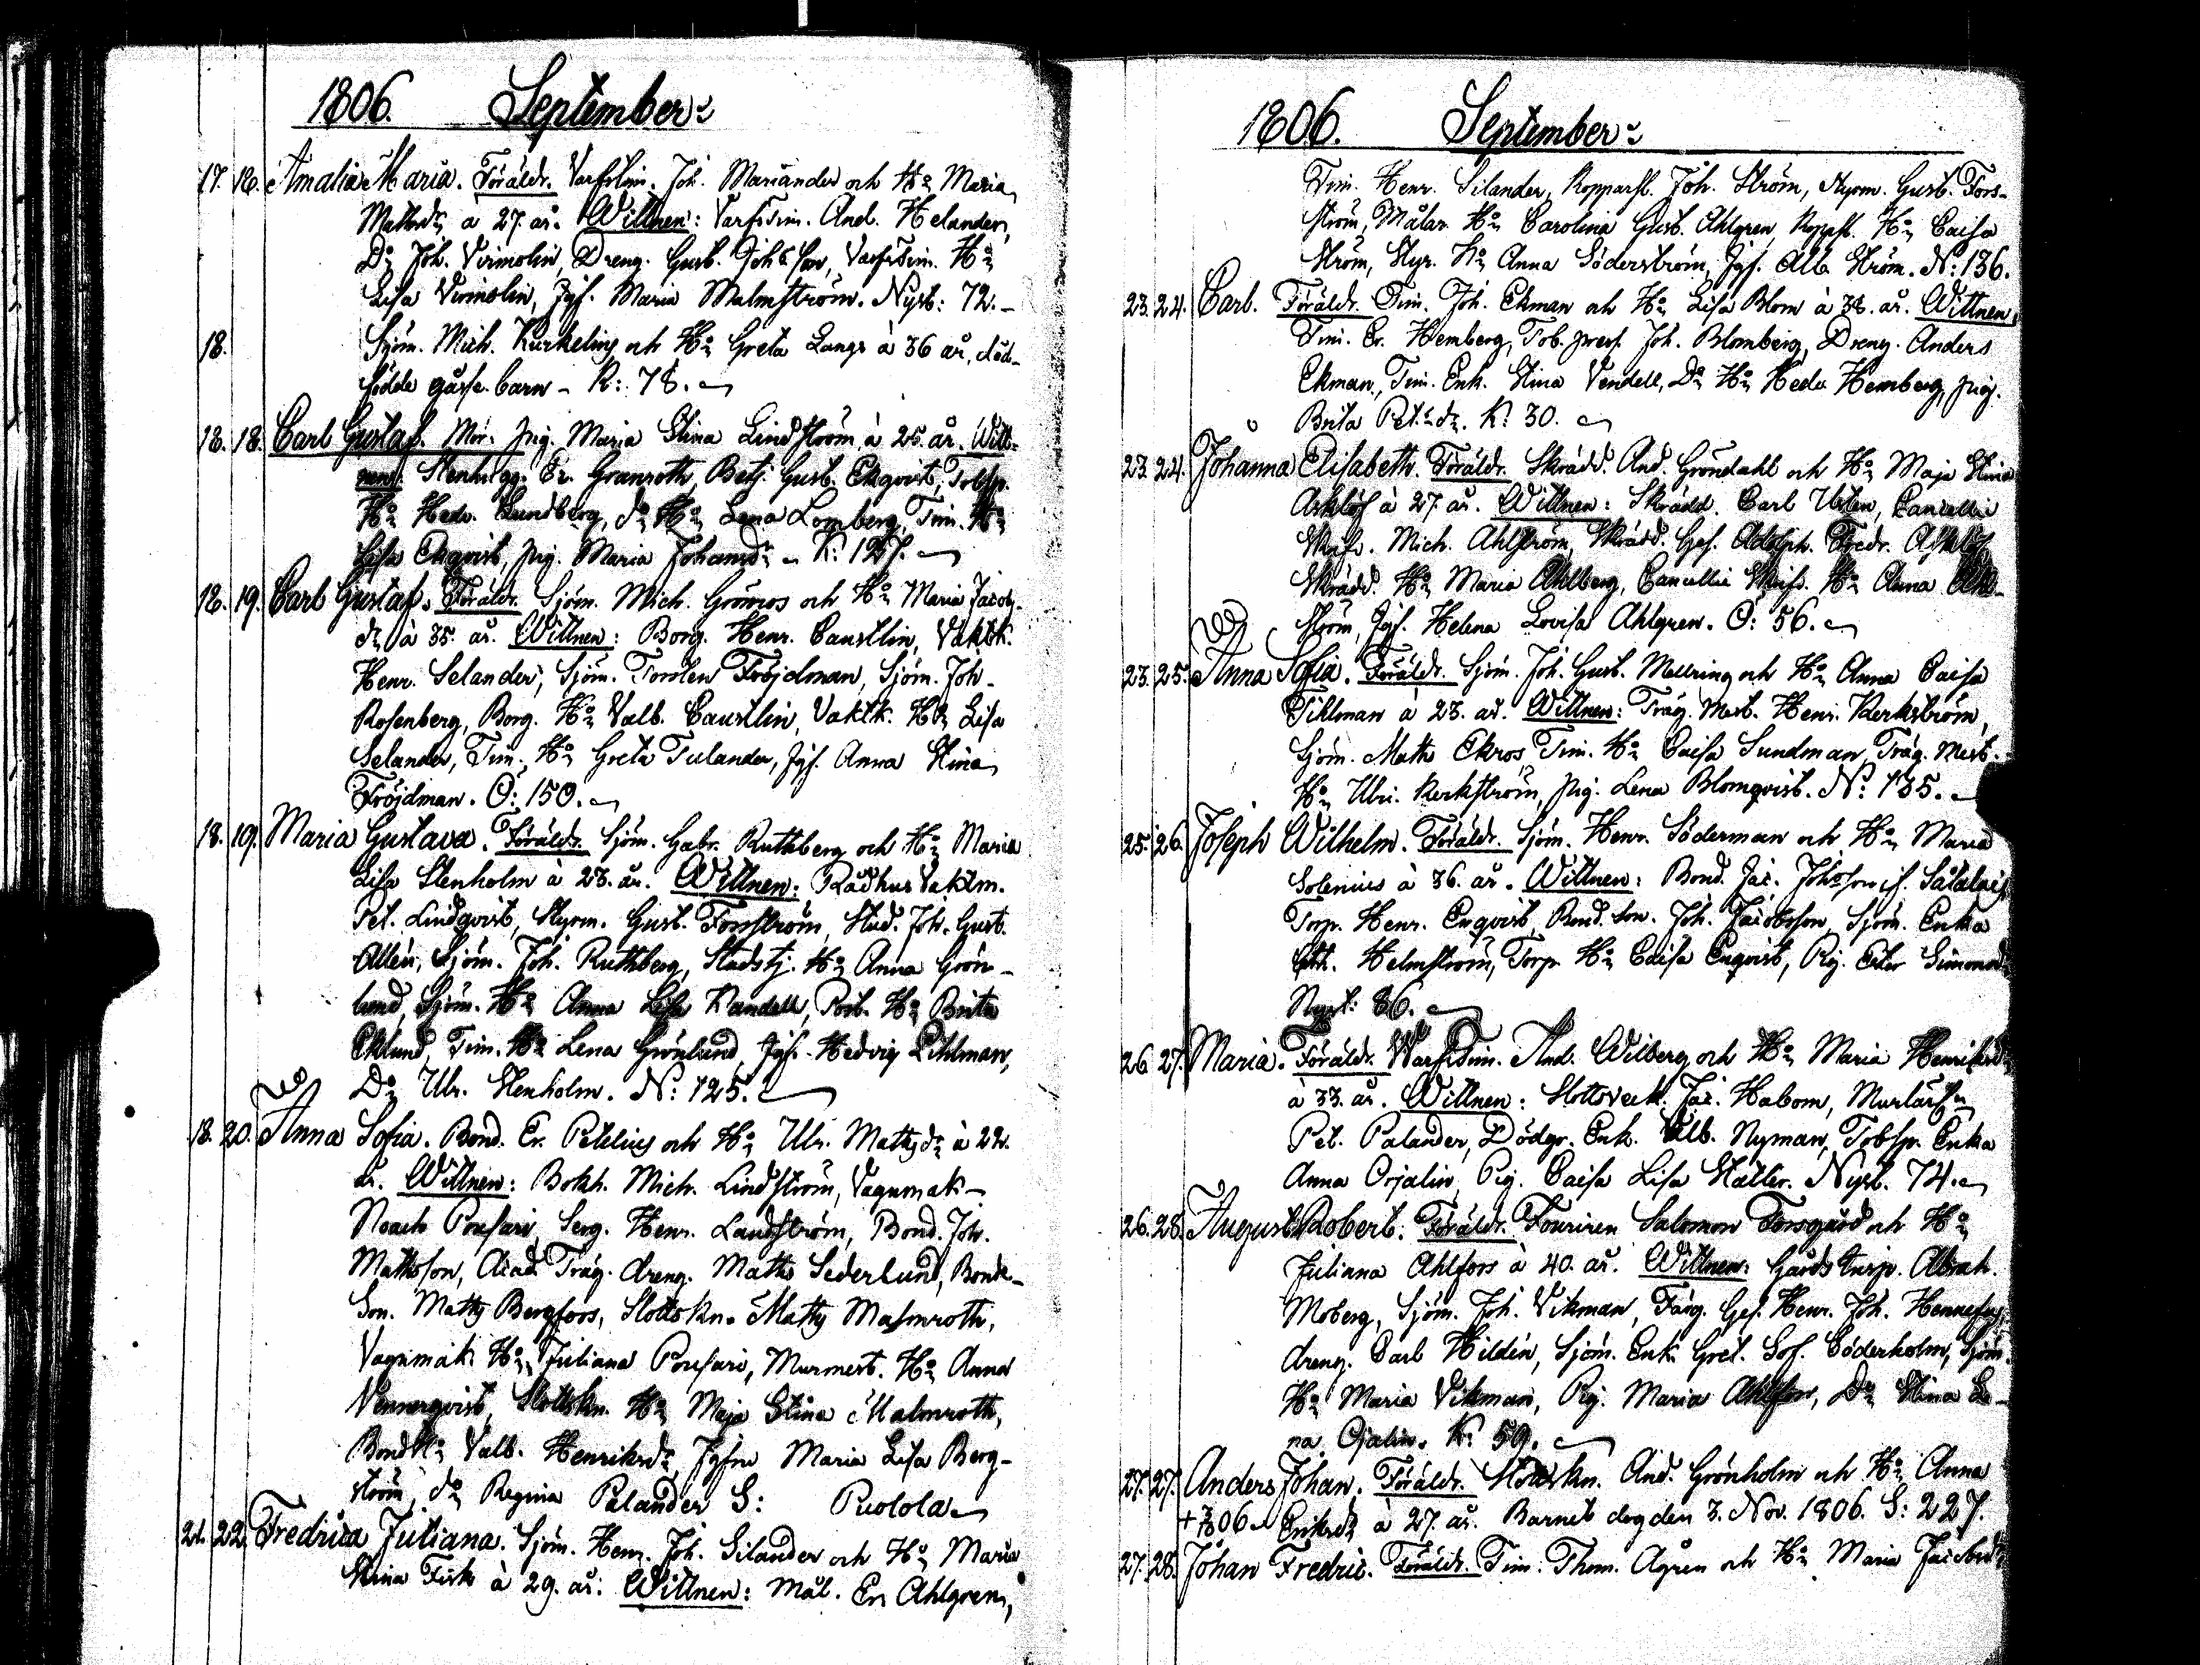 1806. September:
17. 18. Amalia Maria. Föräldr. Varfstim. Joh. Mariander och Ho Maria
Mattsdr à 27. år. Wittnen: Varfstim. And. Helander,
Do Joh. Virmolin, Dreng. Gust. Johsson, Varfstim. Ho
Lisa Virmolin, Jgf. Maria Malmström. Nyst: 72. –
18. Sjöm. Mich. Kurkelius och Ho Greta Lange à 36 år, död-
födde gåsse barn – K: 78.
18. 18. Carl Gustaf. Mor: pig. Maria Stina Lindström à 25. år. Witt-
nen: Stenhugg. Er. Granroth, Betj. Gust. Ekqvist, Tobsp.
Ho Hedv. Lundberg, do Ho Lena Lomberg, Tim. Ho
Lisa Ekqvist, pig. Maria Johansdr – K: 127.
18. 19. Carl Gustaf. Föräldr. Sjöm. Mich. Grönroos och Ho Maria Jacobs-
dr à 35. år. Wittnen: Borg. Henr. Caustlin, Vaktk.
Henr. Selander, Sjöm. Torsten Fröjdman, Sjöm. Joh.
Rosenberg, Borg. Ho Valb. Caustlin, Vaktk. Ho Lisa
Selander, Tim. Ho Greta Tulander, Jgf. Anna Stina
Fröjdman. O: 150.
18. 19. Maria Gustava. Föräldr. Sjöm. Gabr. Ruthberg och Ho Maria
Lisa Stenholm à 23. år. Wittnen: Rådhus Vaktm.
Pet. Lindqvist, Styrm. Gust. Forsström, Stud. Joh. Gust.
Allén, Sjöm. Joh. Ruthberg, Stadstj. Ho Anna Grön-
lund, Sjöm. Ho Anna Lisa Randell, Post. Ho Brita
Eklund, Tim. Ho Lena Grönlund, Jgfr. Hedvig Lihlman,
Do Ulr. Stenholm. N: 125.
18. 20. Anna Sofia. Bond. Er. Petelius och Ho Ulr. Mathsdr à 22.
år. Wittnen: Bokh. Mich. Lindström, Vagnmak-
Noach Pousari, Serg. Henr. Landström, Bond. Joh.
Mathsson, Acad. Träg. dreng. Maths Sederlund, Bonde-
Son. Maths Bergfoos, Slottskn. Maths Malmroth,
Vagnmak. Ho Juliana Pousari, Murmest. Ho Anna
Vennerqvist, Slottskn. Ho Maja Stina Malmroth,
Bond Ho Valb. Henriksdr Jgfrn Maria Lisa Berg-
ström, do Regina Palander S: Puolola
21. 22. Fredrica Juliana. Sjöm. Henr. Joh. Silander och Ho Maria
Stina Fisk à 29. år: Wittnen: Mål. Er. Ahlgren,
1806. September:
Tim. Henr. Silander, Kopparsl. Joh. Ström, Styrm. Gust. Fors-
ström, Målar Ho Carolina Gust. Ahlgren, Kopsl. Ho Caisa
Ström, Styr. Ho Anna Söderström, Jgf. Alb. Ström. N: 136.
23. 24. Carl. Föräldr. Tim. Joh. Ekman och Ho Lisa Blom à 38. år. Wittnen:
Tim. Er. Hemberg, Tob. press. Joh. Blomberg, Dreng. Anders
Ekman, Tim. Enk. Stina Vendell, Do Ho Hedv. Hemberg, pig.
Brita Petersdr. K: 30.
23. 24. Johanna Elisabeth. Föräldr. Skrädd. And. Gröndahl och Ho Maja Stina
Asklöf à 27. år. Wittnen: Skrädd. Carl Usten, Cancellie
Skrifv. Mich. Ahlström, Skrädd. Ges. Adolph. Fredr. Asklöf,
Skrädd. Ho Maria Ahlberg, Cancellie Skrifv. Ho Anna Ahl-
ström, Jgf. Helena Lovisa Ahlgren. O: 56.
23. 25. Anna Sofia. Föräldr. Sjöm. Joh. Gust. Mellring och Ho Anna Caisa
Tihlman à 23. år. Wittnen: Träg. Mest. Henr. Kerkström,
Sjöm. Maths Ekros, Tim. Ho Caisa Sundman, Träg. Mest.
Ho Ulri. Kerkström, pig. Lena Blomqvist. N: 135.
25. 26. Joseph Wilhelm. Föräldr. Sjöm. Henr. Söderman och Ho Maria
Solenius à 36. år. Wittnen: Bond. Jac. Johsson
Torp. Henr. Enqvist, Bond. Son. Joh. Jacobsson, Sjöm. Enka
Helmström, Torp. Ho Caisa Enqvist, Pig. Ester Simonsdr
Nyst: 86.
26. 27. Maria. Föräldr. Warfstim. And. Wilberg och Ho Maria Henriksdr
à 33. år. Wittnen: Jac. Habom, Murlärl.
Pet. Palander, Dödgr. Enk. Valb. Nyman, Tobsp. Enka
Anna Orjalin, Pig. Caisa Lisa Staller. Nyst. 74.
26. 28. August Robert: Föräldr. Fouriren Salomon Forsgård och Ho
Juliana Ahlfors à 40. år. Wittnen: Gårds Insp. Abrah.
Moberg, Sjöm. Joh. Vikman, Färg. Ges. Henr. Joh.
dreng. Carl Hildén, Sjöm. Enk. Gret. Sof. Söderholm, Sjöm.
Ho Maria Vikman, Pig. Maria Ahlfors, Do Stina Le-
na Ojalin. K: 59.
27. 27. Anders Johan. Föräldr. Slottskn. And. Grönholm och Ho Anna
Eriksdr à 27. år. Barnet dog den 3. Nov. 1806. S: 227.
27. 28. Johan Fredric. Föräldr. Tim. Thom. Ågren och Ho Maria Jacobsdr